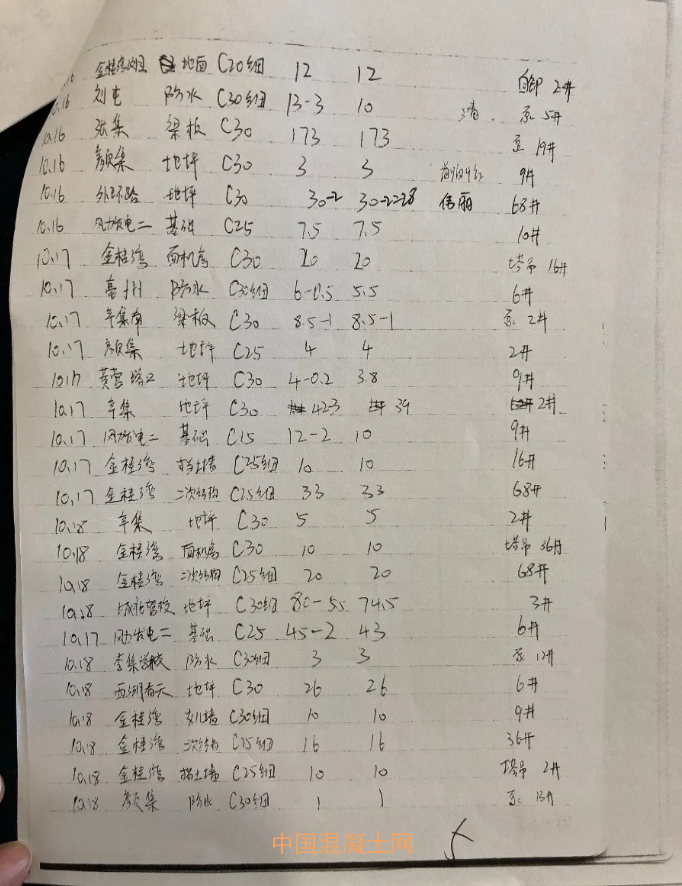 16 金桂湾 地面 C20细 12 12 自卸 2#
10.16 刘屯 防水 C30细 13-3 10 泵 5#
10.16 张集 梁板 C30 173 173 泵 19#
10.16 颜集 地坪 C30 3 3 9#
10.16 外环路 地坪 C30 30-2 30-2=28 倩丽 68#
10.16 风力发电二 基础 C25 7.5 7.5 10#
10.17 金桂湾 面机房 C30 20 20 塔吊 16#
10.17 防水 C30细 6-0.5 5.5 6#
10.17 辛集南 梁板 C30 8.5-1 8.5-1 泵 2#
10.17 颜集 地坪 C25 4 4 2#
10.17 黄营 地坪 C30 4-0.2 3.8 9#
10.17 辛集 地坪 C30 42-3 39 2#
10.17 风力发电二 基础 C15 12-2 10 9#
10.17 金桂湾 挡土墙 C25细 10 10 16#
10.17 金桂湾 二次结构 C25细 33 33 68#
10.18 辛集 地坪 C30 5 5 2#
10.18 金桂湾 面机房 C30 10 10 塔吊 36#
10.18 金桂湾 二次结构 C25细 20 20 68#
10.18 城北学校 地坪 C30细 80-5.5 74.5 3#
10.17 风力发电二 基础 C25 45-2 43 6#
10.18 李集学校 防水 C30细 3 3 泵 12#
10.18 西湖春天 地坪 C30 26 26 6#
10.18 金桂湾 女儿墙 C30细 10 10 9#
10.18 金桂湾 二次结构 C25细 16 16 36#
10.18 金桂湾 挡土墙 C25细 10 10 塔吊 2#
10.18 颜集 防水 C30细 1 1 泵 13#
中国混凝土网